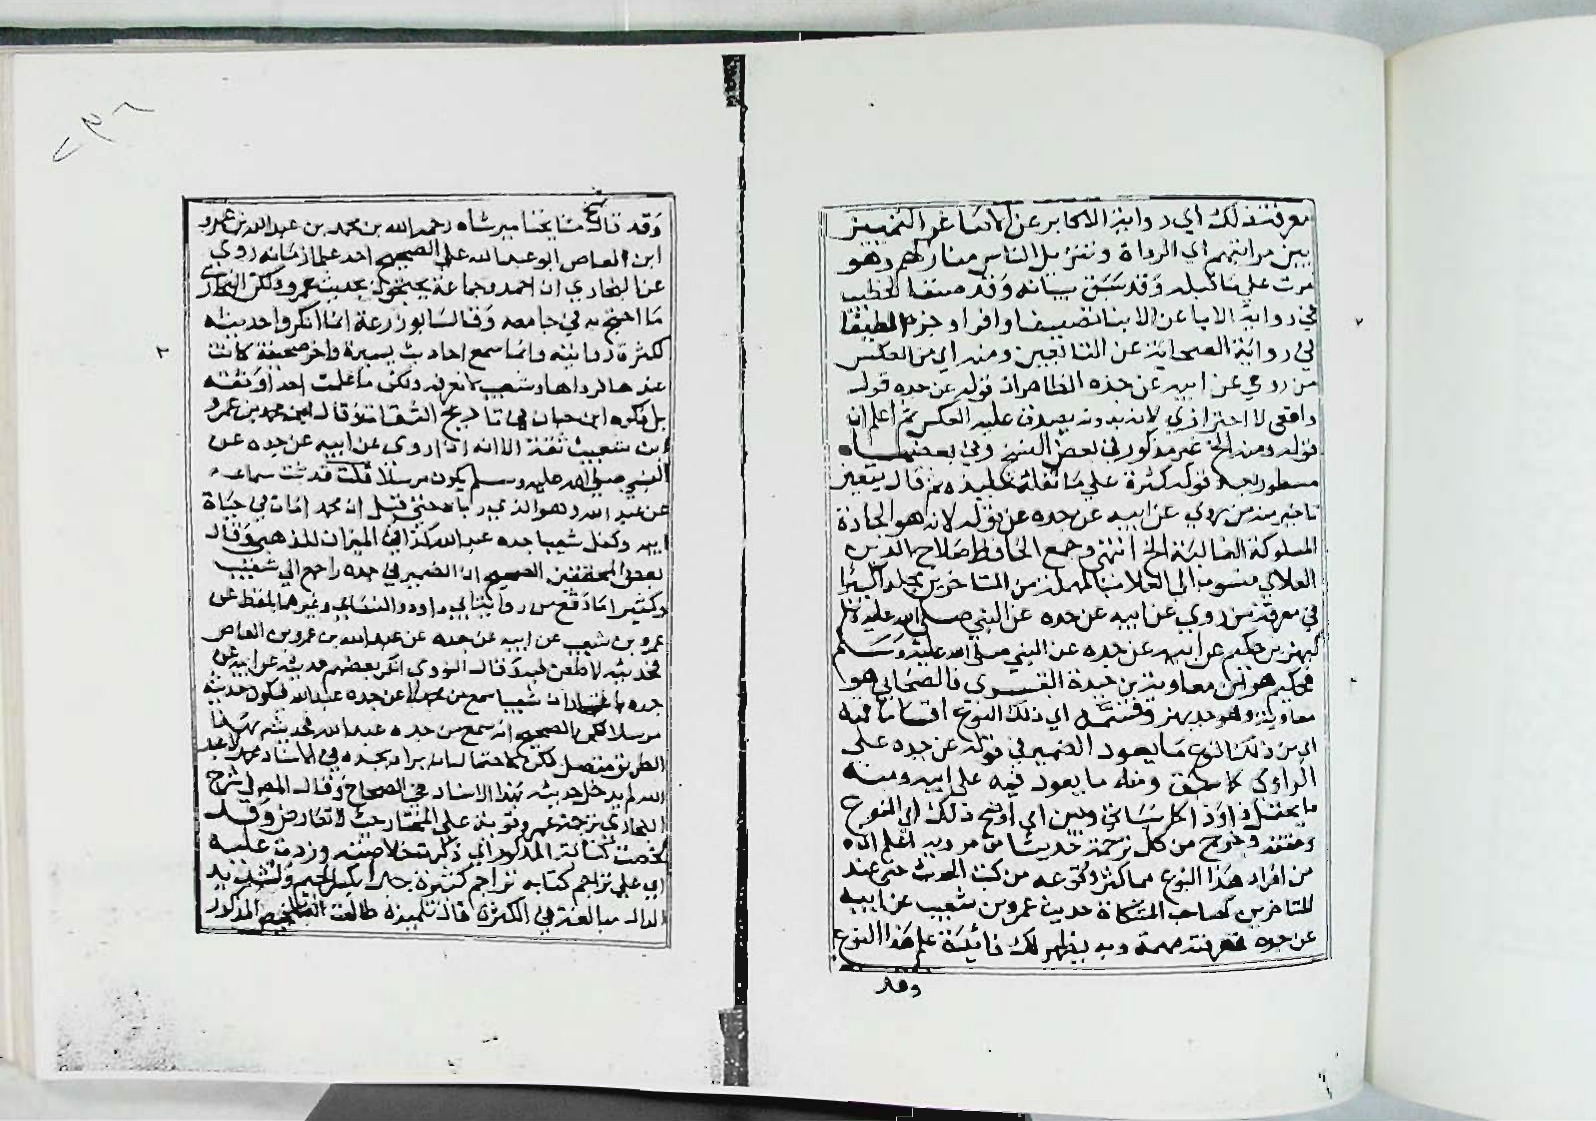 معرفته ذلك اي رواية الاكابر عن الاصاغر التمييز
بين مراتبهم اي الرواة وتنزيل الناس منازلهم وهو
مرت على ما قبله وقد سبق بيانه وقد صنف الخطيب
في رواية الابا عن الابنا تصنيفا وافرد جزء الطيفا
في رواية الصحابة عن التابعين ومنه اي من العكس
من روى عن ابيه عن جده الظاهر ان قوله عن جده قوله
واقعي لا احترازي لانه بدونه يصدق عليه العكس ثم اعلم ان
قوله ومنه الخ غير مذكور في بعض النسخ وفي بعضها
مسطور بعد قوله كثرة على ما نقله تلميذه ثم قال يتغير
تاخير منه من روى عن ابيه عن جده عن قوله لانه هو الجادة
المسلوكة الغالبة الخ انتهى وجمع الحافظ صلاح الدين
العلائي منسوب الى العلا من المتاخرين مجلدا كبيرا
في معرفة من روى عن ابيه عن جده عن النبي صلى الله عليه وسلم
كبهز بن حكيم عن ابيه عن جده عن النبي صلى الله عليه وسلم
فحكيم هو ابن معاوية بن حيدة القشيري فالصحابي هو
معاوية وهو جد بهز وقسمه اي ذلك النوع اقساما فمنه
اي من ذلك النوع ما يعود الضمير في قوله عن جده على
الراوي كما سبق ومنه ما يعود فيه على ابيه ومنه
ما يحتمل ذا وذا كل سياتي وبين اي اوضح ذلك اي النوع
وحققه وخرج من كل ترجمة حديثا من مرويه اعلم انه
من افراد هذا النوع مما كثر وقوعه من كتب الحديث حتى عند
المتاخرين كصاحب المشكاة حديث عمرو بن شعيب عن ابيه
عن جده فمعرفته مهمة وبه يظهر لك فائدة علم هذا النوع
وقد
وقد قال شيخ مشايخنا ميرشاه رحمه الله بن محمد بن عبد الله بن عمرو
ابن العاص ابو عبد الله على الصحيح احد علما زمانه روي
عن البخاري ان احمد وجماعة يحتجون بحديث عمرو ولكن البخاري
ما احتج به في جامعه وقال ابو زرعة انما انكروا حديثه
لكثرة روايته وانما سمع احاديث يسيرة واخر صحيفة كانت
عندها فرواها وشعيب لا نعرفه ولكن ما علمت احدا وثقه
بل ذكره ابن حبان في تاريخ الثقات وقال ابن محمد بن عمرو
ابن شعيب ثقة الا انه اذا روى عن ابيه عن جده عن
النبي صلى الله عليه وسلم يكون مرسلا قلت قد ثبت سماعه
عن عبد الله وهو الذي رباه حتى قيل ان محمدا مات في حياة
ابيه وكفل شعيبا جده عبد الله كذا في الميزان للذهبي وقال
بعض المحققين الصحيح ان الضمير في جده راجع الى شعيب
وكثيرا ما وقع من رواية ابي داود والنسائي وغيرهما بلفظ عن
عمرو بن شعيب عن ابيه عن جده عن عبد الله بن عمرو بن العاص
فحديثه لا طعن فيه وقال النووي انكر بعضهم حديثه عن ابيه عن
جده باعتبار ان شعيبا سمع من محمد لا عن جده عبد الله فيكون حديثه
مرسلا لكن الصحيح انه سمع من جده عبد الله فحديثه بهذا
الطريق متصل لكن لاحتمال ان يراد بجده في الاسناد محمد لا عبد
الله لم يدخل حديثه بهذا الاسناد في الصحاح وقال المص في شرح
البخاري ترجمة عمرو قوية على المختار حيث لا تعارض وقد
لخصت كتابه المذكور اي ذكرت خلاصته وزدت عليه
اي على تراجم كتابه تراجم كثيرة جدا بكسر الجيم وتشديد
الدال مبالغة في الكثرة قال تلميذه طالعت التلخيص المذكور